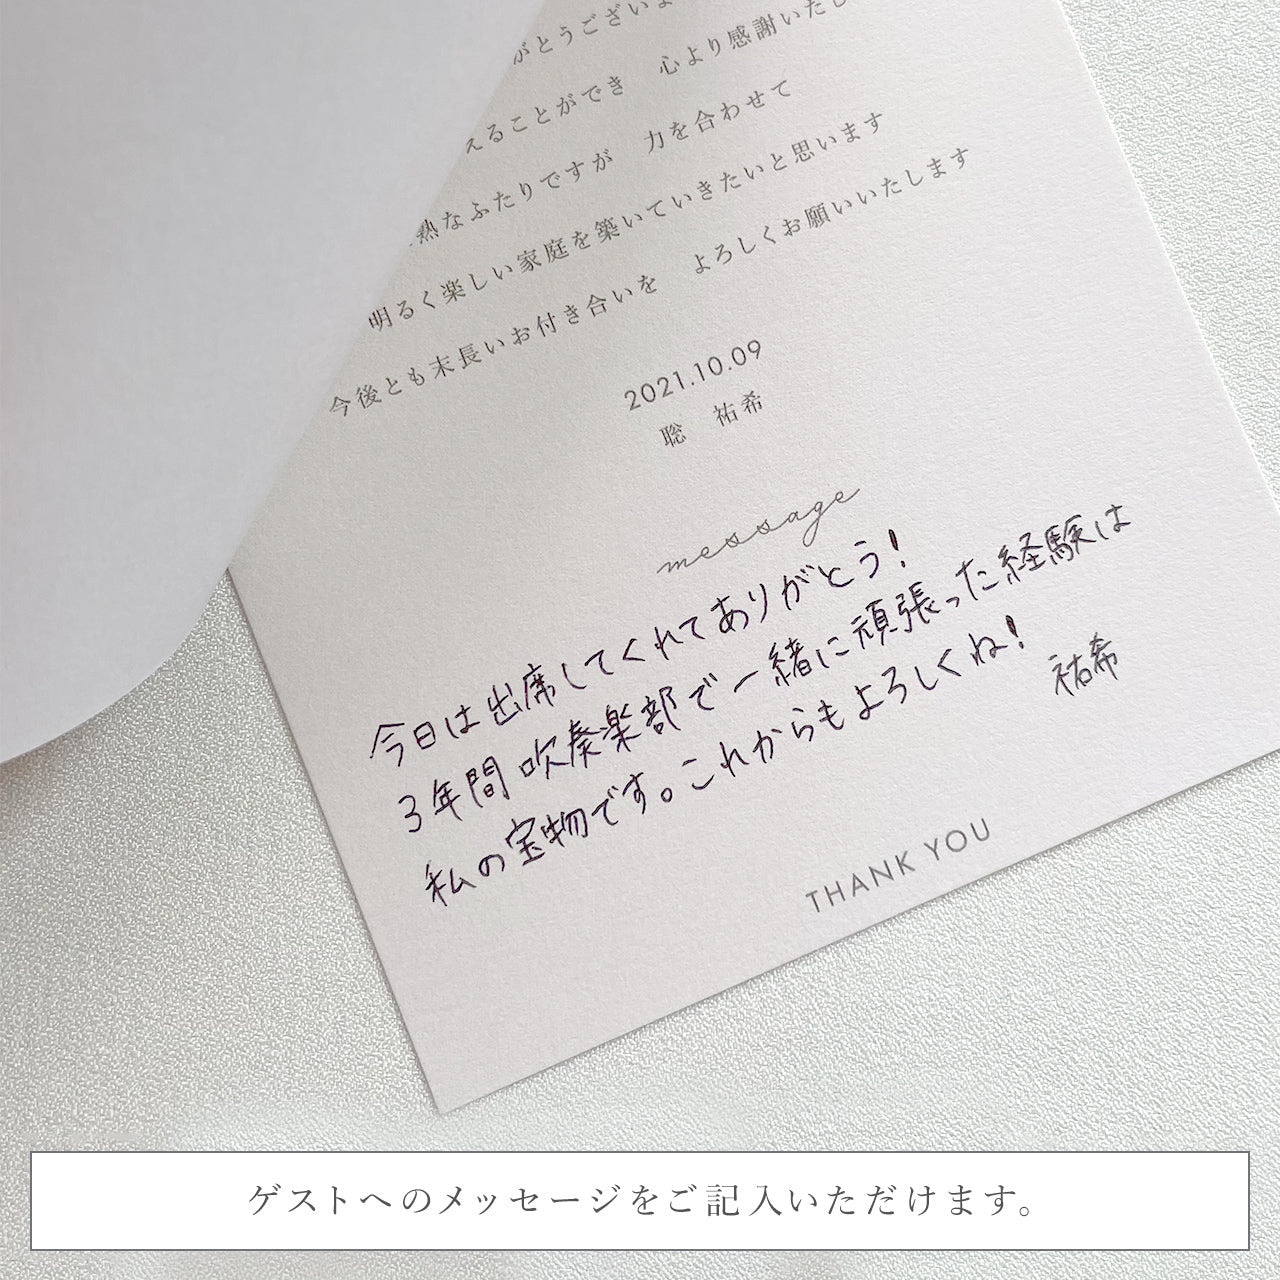 がとうございま
えることができ　心より感謝いたし
熟なふたりですが　力を合わせて
明るく楽しい家庭を築いていきたいと思います
今後とも末長いお付き合いを　よろしくお願いいたします
2021.10.09
聡　祐希
message
今日は出席してくれてありがとう!
3年間吹奏楽部で一緒に頑張った経験は
私の宝物です。これからもよろしくね!
祐希
THANK YOU
ゲストへのメッセージをご記入いただけます。